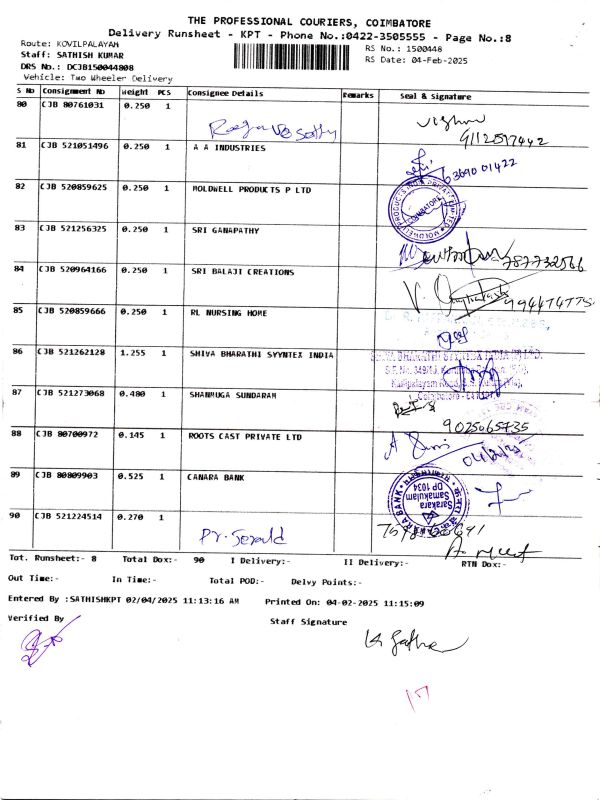 THE PROFESSIONAL COURIERS, COIMBATORE
Delivery Runsheet - KPT - Phone No.:0422-3505555 - Page No.:8
Route: KOVILPALAYAM
Staff: SATHISH KUMAR
DRS No.: DCJB150044808
Vehicle: Two Wheeler Delivery
RS No.: 1500448
RS Date: 04-Feb-2025
S No Consignment No Weight PCS Consignee Details Remarks Seal & Signature
80 CJB 80761031 0.250 1
9112517442
81 CJB 521051496 0.250 1 A A INDUSTRIES
63690 01422
82 CJB 520859625 0.250 1 MOLDWELL PRODUCTS P LTD
COIMBATORE
83 CJB 521256325 0.250 1 SRI GANAPATHY
787732566
84 CJB 520964166 0.250 1 SRI BALAJI CREATIONS
85 CJB 520859666 0.250 1 RL NURSING HOME
86 CJB 521262128 1.255 1 SHIVA BHARATHI SYYNTEX INDIA
87 CJB 521273068 0.480 1 SHANMUGA SUNDARAM
9025065735
88 CJB 80700972 0.145 1 ROOTS CAST PRIVATE LTD
89 CJB 80809903 0.525 1 CANARA BANK
Sarakara
Samakulam
DP 1034
90 CJB 521224514 0.270 1
Pr. Jerald
Tot. Runsheet:- 8 Total Dox:- 90 I Delivery:- II Delivery:- RTN Dox:-
Out Time:- In Time:- Total POD:- Delvy Points:-
Entered By :SATHISHKPT 02/04/2025 11:13:16 AM Printed On: 04-02-2025 11:15:09
Verified By Staff Signature
17